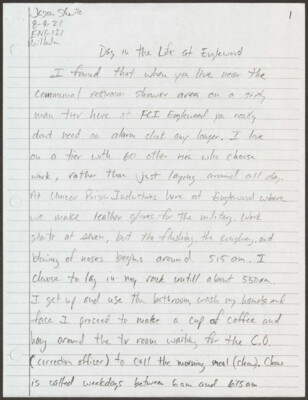 1
8-9-21
ENG 121
Day in the Life at Englewood
I found that when you live near the
communal restroom shower area on a sixty
man tier here at FCI Englewood you really
dont need an alarm clock any longer. I live
on a tier with 60 other men who choose
work, rather than just laying around all day.
At Unicor Prison Industries here at Englewood where
we make leather gloves for the military. Work
starts at seven, but the flushing, the coughing, and
blowing of noses begins around 515 am. I
choose to lay in my rack untill about 550am.
I get up and use the bathroom, wash my hands and
face I proceed to make a cup of coffee and
hang around the tv room waiting for the C.O.
(correction officer) to call the morning meal (chow). Chow
is called weekdays between 6am and 615am